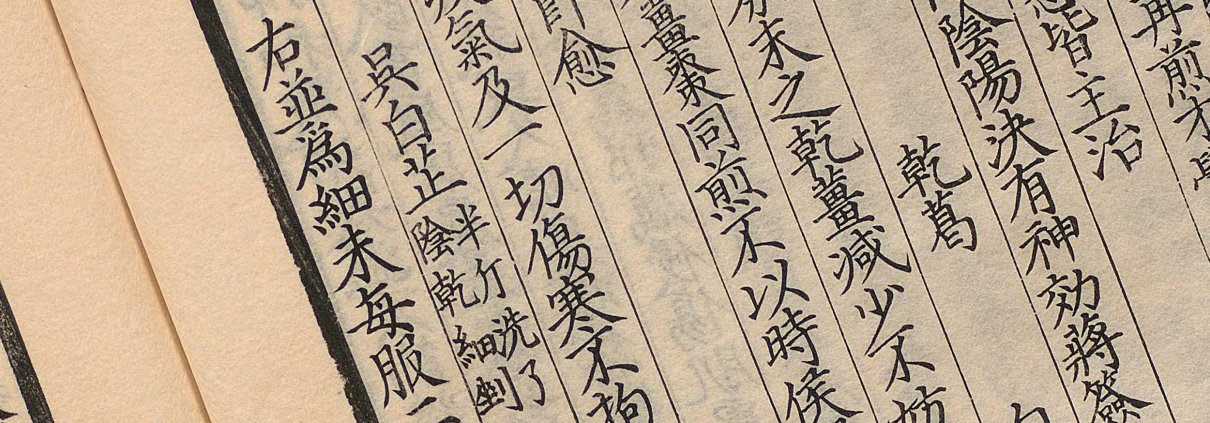 再煎才
皆主治
陰陽決有神効蔣簽
乾葛
末之乾薑減少不妨
薑棗同煎不以時侯
即愈
氣及一切傷寒不拘
吳白芷半斤洗了
陰乾細剉
右並爲細末每服二